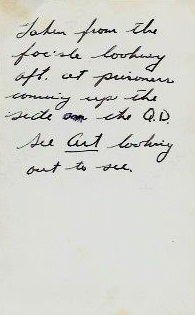 Taken from the
foc'sle looking
aft. at prisoners
coming up the
side on the Q.D.
See Art looking
out to see.